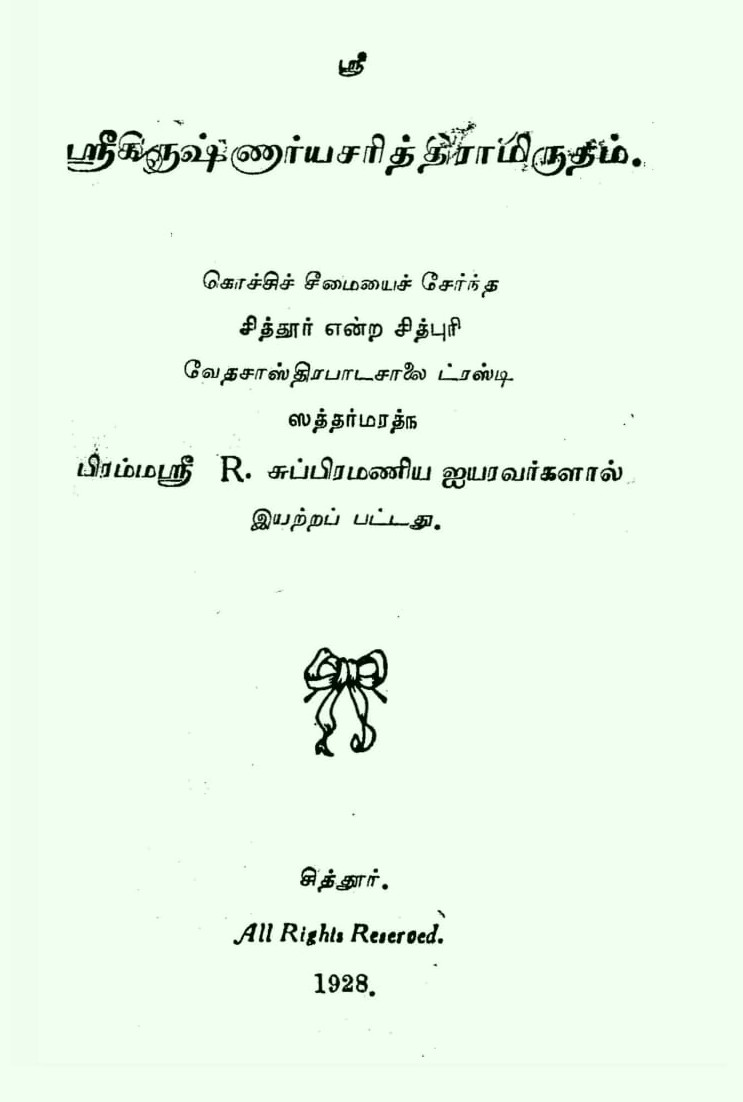 ஸ்ரீ
ஸ்ரீகிருஷ்ணார்யசரித்திராமிருதம்.
கொச்சிச் சீமையைச் சேர்ந்த
சித்தூர் என்ற சித்புரி
வேதசாஸ்திரபாடசாலை ட்ரஸ்டி
ஸத்தர்மரத்ந
பிரம்மஸ்ரீ R. சுப்பிரமணிய ஐயரவர்களால்
இயற்றப் பட்டது.
சித்தூர்.
All Rights Reserved.
1928.